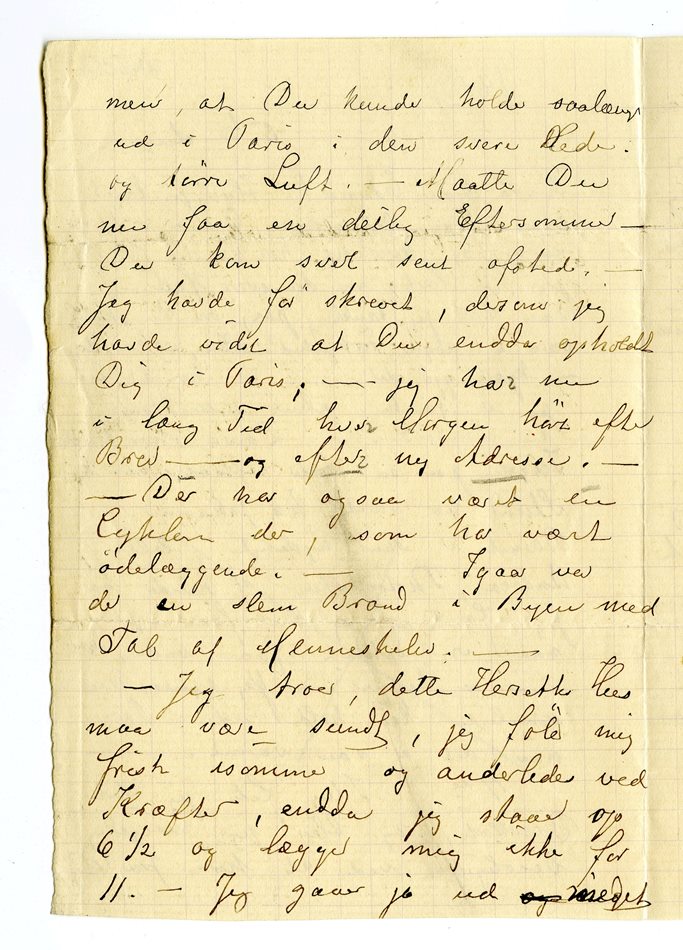 men, at Du kunde holde saalænge
ud i Paris i den svere Hede.
og tørre Luft. — Maatte Du
nu faa en deilig Eftersommer —
Du kom svert sent afsted. —
Jeg havde før skrevet, dersom jeg
havde vidst at Du endda opholdt
Dig i Paris; — jeg har nu
i lang Tid hver Morgen hørt efter
Brev — og efter ny Adresse. —
— Der har ogsaa været en
Cyklon der, som har vært
ödelæggende. — Igaar var
de en slem Brand i Byen med
Tab af Menneskeliv. —
— Jeg troer, dette Hus
maa være sundt, jeg føler mig
frisk isommer og anderledes ved
Kræfter, endda jeg staar op
6 1/2 og lægger mig ikke før
11. — Jeg gaaer jo ud meget